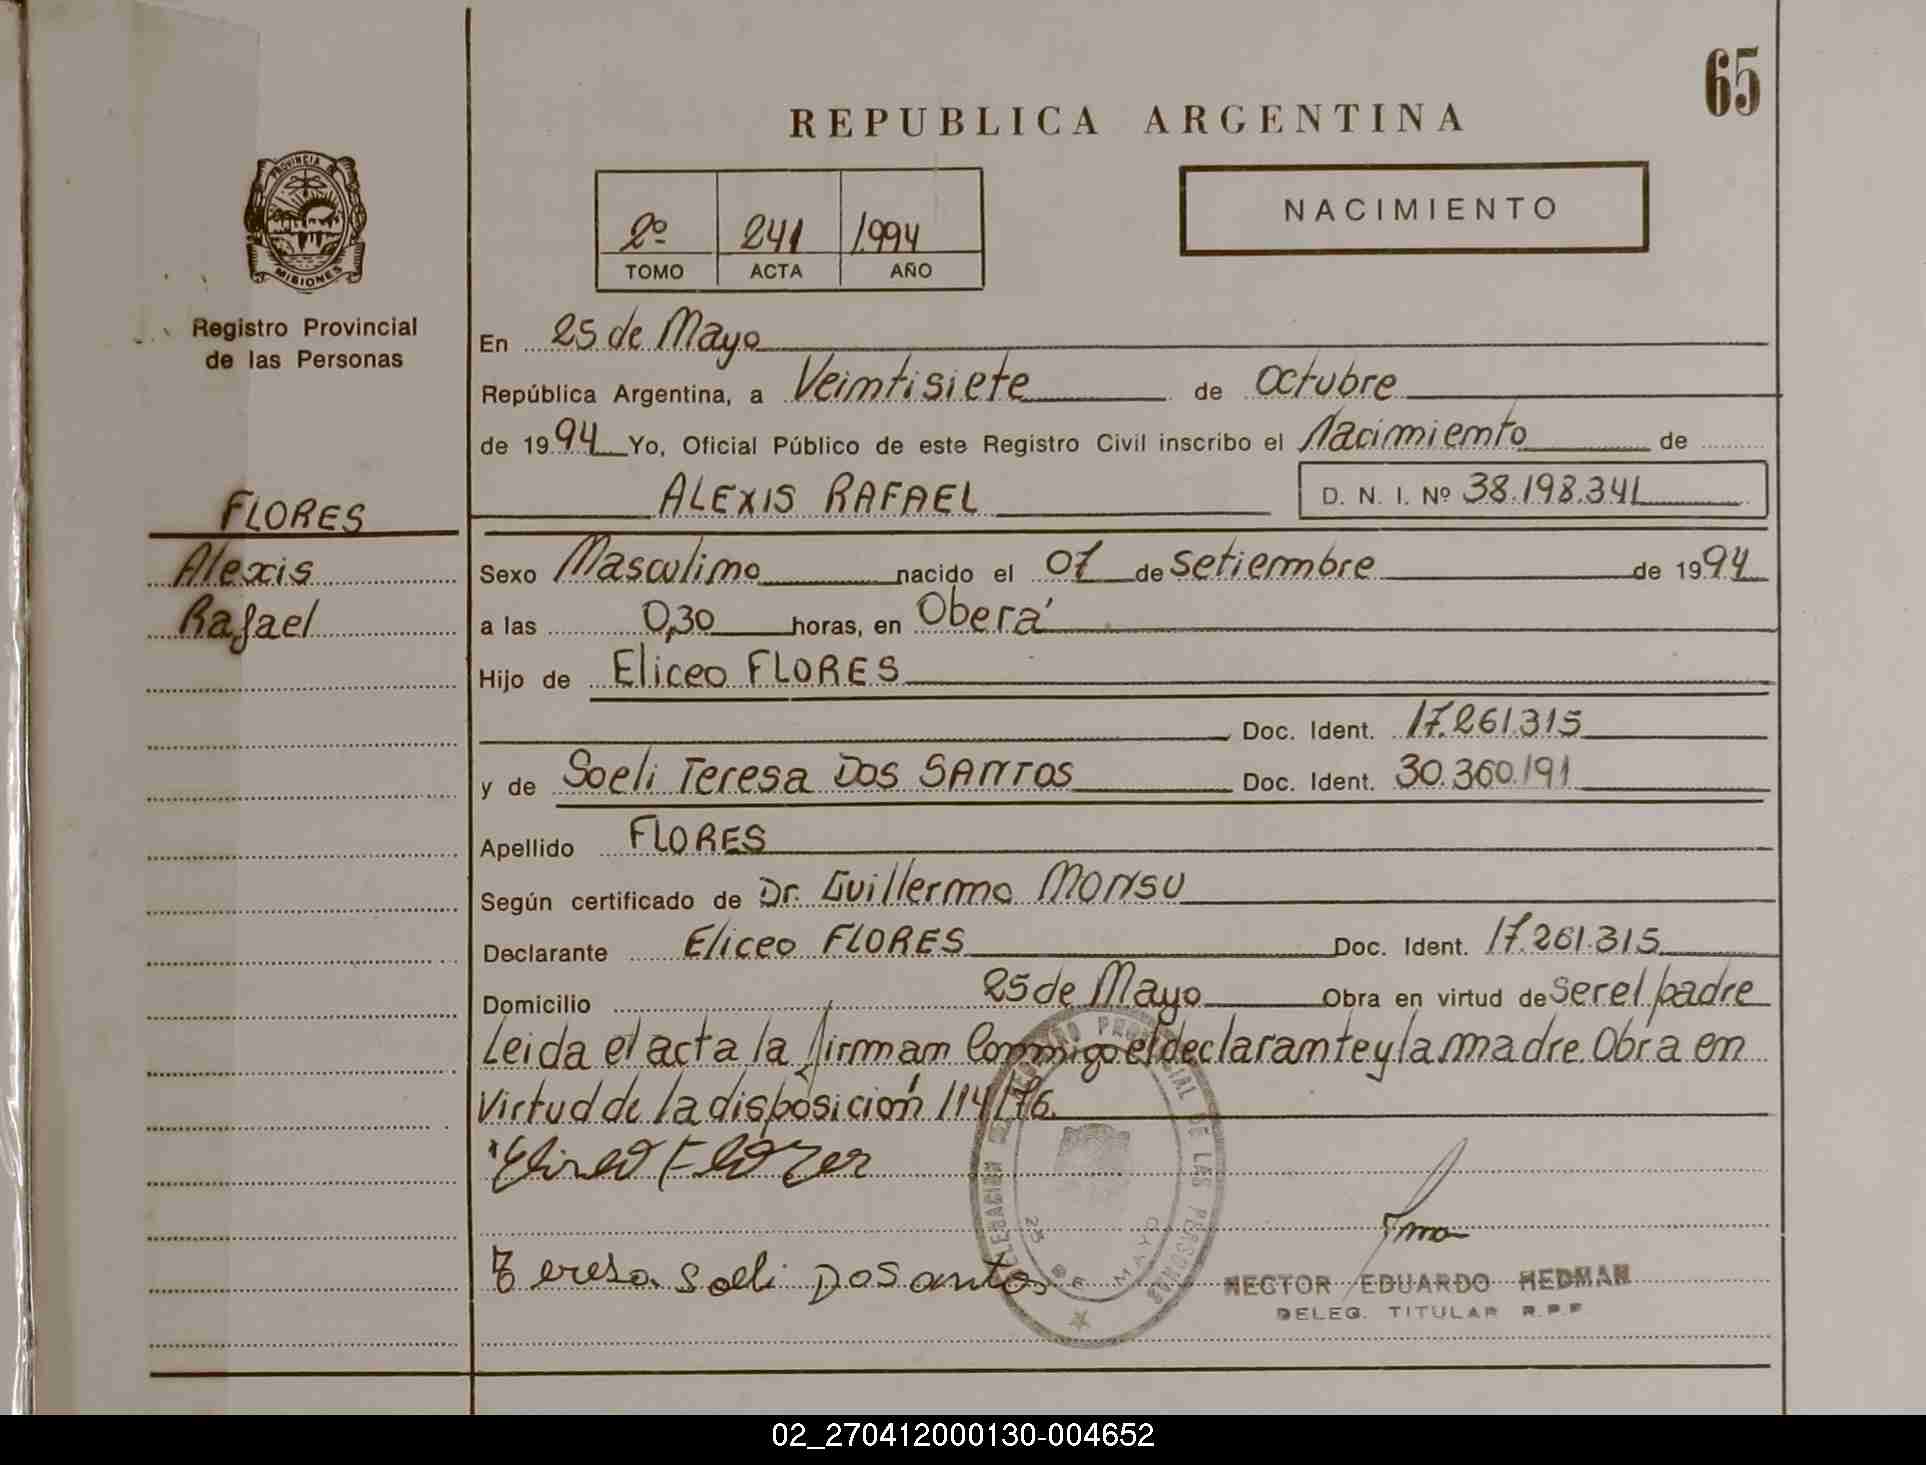 65
REPUBLICA ARGENTINA
PROVINCIA
MISIONES
2º 241 1994
TOMO ACTA AÑO
NACIMIENTO
Registro Provincial
de las Personas
En 25 de Mayo
República Argentina, a Veintisiete de octubre
de 1994 Yo, Oficial Público de este Registro Civil inscribo el Nacimiento de
ALEXIS RAFAEL D. N. I. Nº 38.198.341
FLORES
Alexis
Rafael
Sexo Masculino nacido el 07 de setiembre de 1994
a las 0,30 horas, en Oberá
Hijo de Eliceo FLORES
Doc. Ident. 17.261.315
y de Soeli Teresa DOS SANTOS Doc. Ident. 30.360.191
Apellido FLORES
Según certificado de Dr. Guillermo MONSU
Declarante Eliceo FLORES Doc. Ident. 17.261.315
Domicilio 25 de Mayo Obra en virtud de ser el padre
Leida el acta la firman Conmigo el declarante y la madre. Obra en
Virtud de la disposición 114/76.
Teresa Soeli Dosantos
DELEGACION REGISTRO PROVINCIAL DE LAS PERSONAS
25 DE MAYO
HECTOR EDUARDO HEDMAN
DELEG. TITULAR R.P.P
02_270412000130-004652